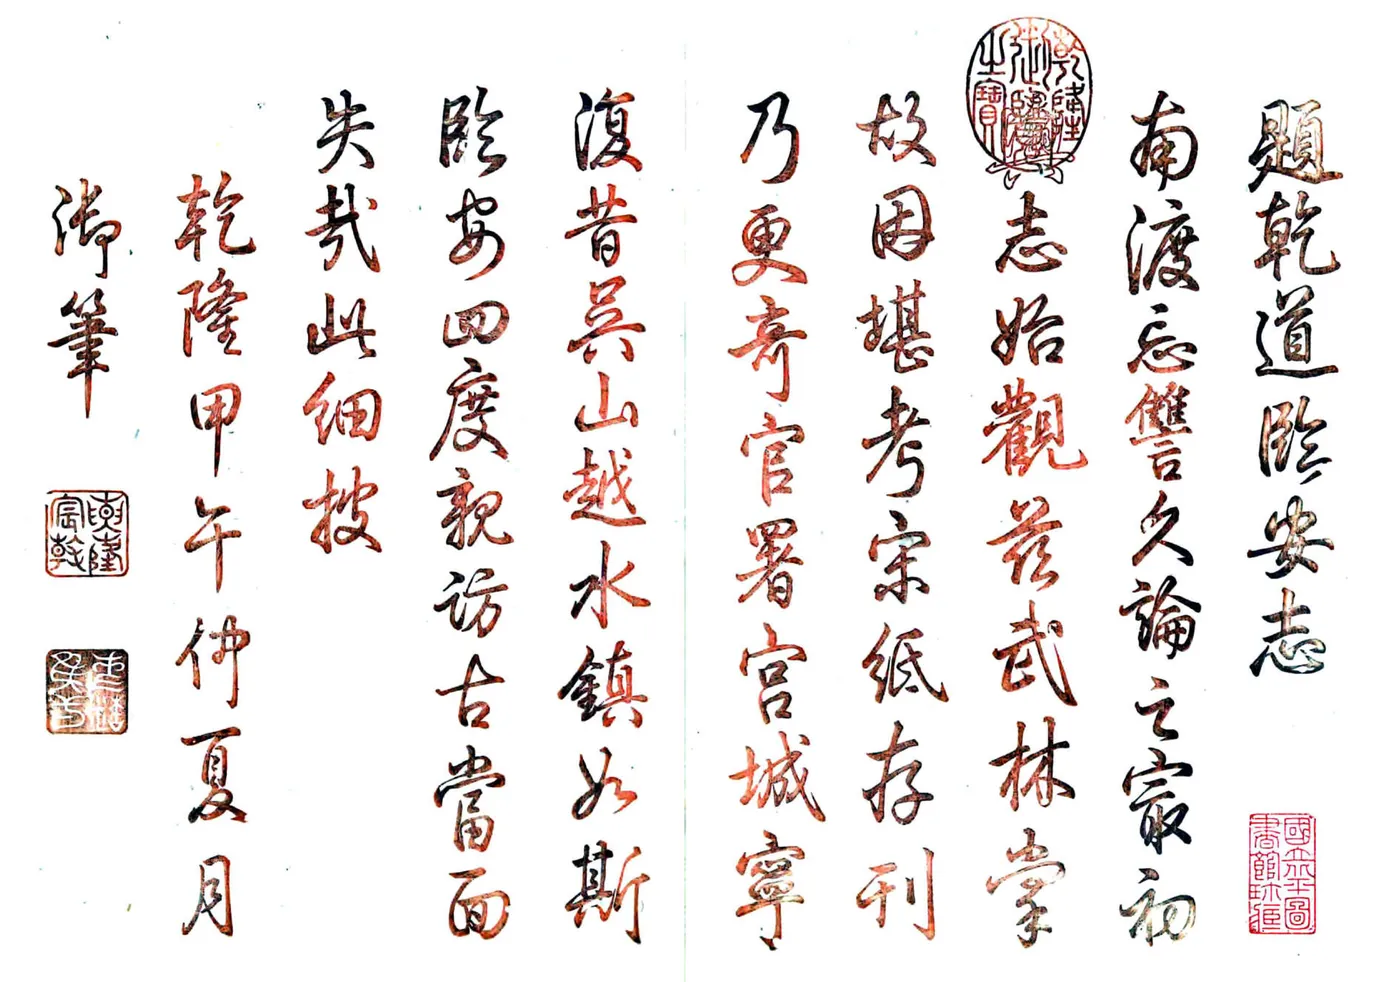 題乾道臨安志
國立北平圖書館珍藏
南渡忘讐久論之㝡初
乾隆御覽之寶
志始觀茲武林掌
故因堪考宋紙存刊
乃更奇官署宮城寧
復昔吳山越水鎮如斯
臨安四度親訪古當面
失哉此細披
乾隆甲午仲夏月
御筆
乾隆宸翰